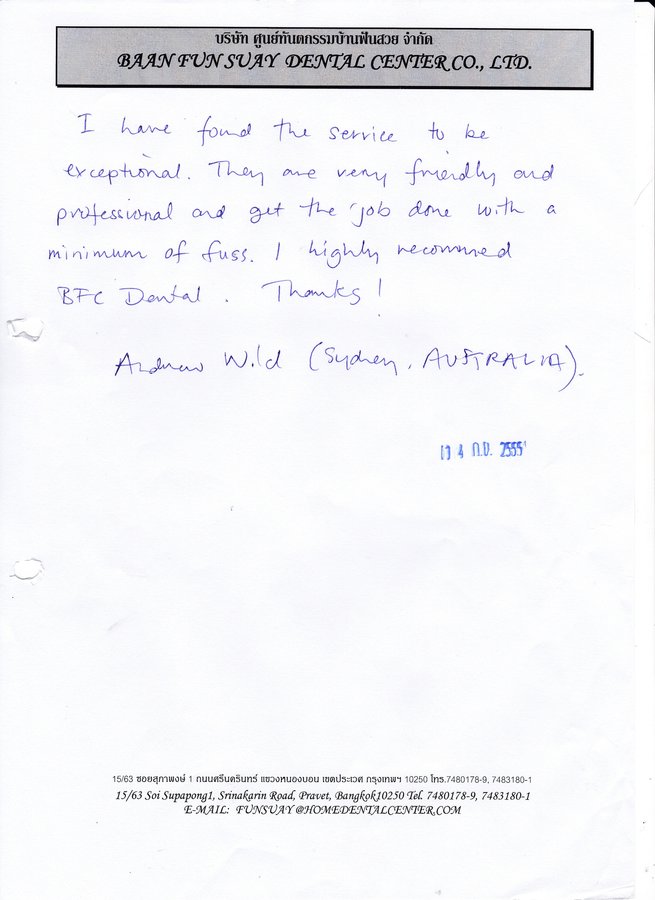 บริษัท ศูนย์ทันตกรรมบ้านฟันสวย จำกัด
BAAN FUN SUAY DENTAL CENTER CO., LTD.
I have found the service to be
exceptional. They are very friendly and
professional and get the job done with a
minimum of fuss. I highly recommed
BFC Dental. Thanks!
Andrew Wild (Sydney, AUSTRALIA).
4 ก.ย. 2555
15/63 ซอยสุภาพงษ์ 1 ถนนศรีนครินทร์ แขวงหนองบอน เขตประเวศ กรุงเทพฯ 10250 โทร.7480178-9, 7483180-1
15/63 Soi Supapong1, Srinakarin Road, Pravet, Bangkok10250 Tel. 7480178-9, 7483180-1
E-MAIL: FUNSUAY@HOMEDENTALCENTER.COM